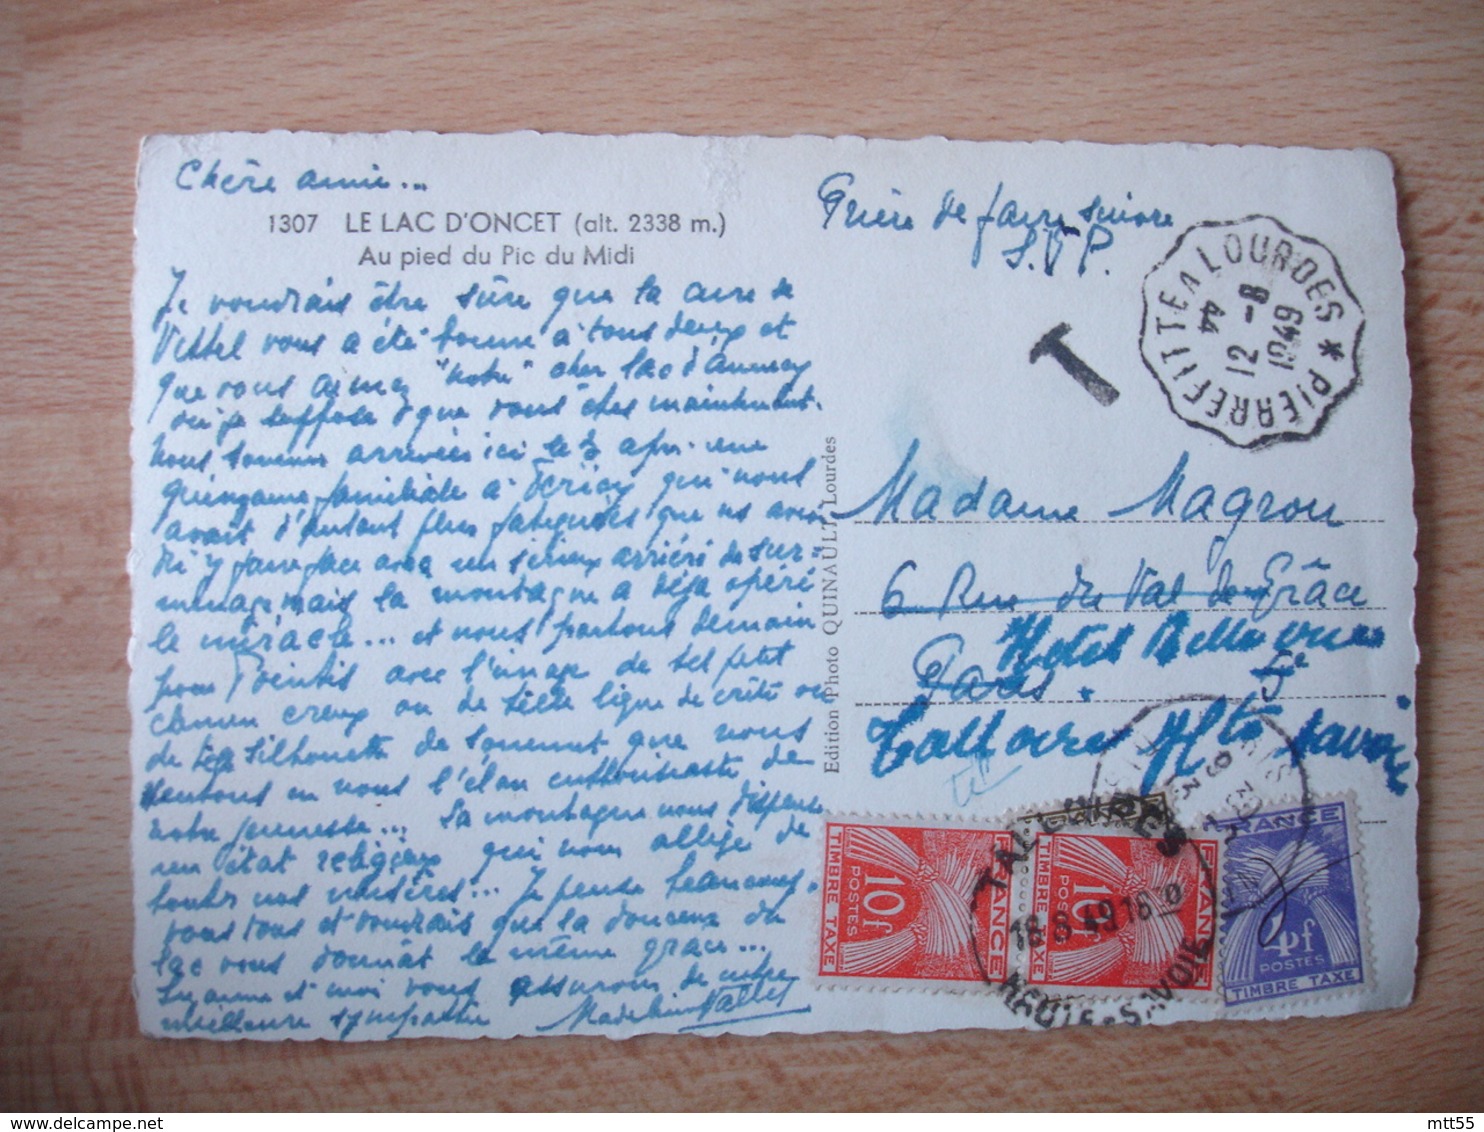 Chère amie...
1307 LE LAC D'ONCET (alt. 2338 m.)
Au pied du Pic du Midi
Je voudrais être sûre que la cure de
Vittel vous a été bonne à tous deux et
que vous aimez "notre" cher lac d'Annecy
où je suppose que vous êtes maintenant.
Nous sommes arrivées ici le 3 après une
quinzaine familiale à qui nous
avait d'autant plus fatiguées que ns avions
dû y faire face avec un sérieux arriéré de sur-
menage mais la montagne a déjà opéré
le miracle... et nous partons demain
pour avec l'image de tel petit
chemin creux ou de telle ligne de crête ou
de telle silhouette de sommet que nous
sentons en nous l'élan enthousiaste de
notre jeunesse... La montagne nous dispense
un état religieux qui nous allège de
toutes nos misères... Je pense beaucoup à
vous tous et voudrais que la douceur du
lac vous donnât la même grâce...
Suzanne et moi vous assurons de notre
meilleure sympathie Madeleine
Prière de faire suivre
S.V.P.
T
PIERREFITTE A LOURDES *
44
12 -8
1949
Madame Magrou
6 Rue du Val de Grâce
Hotel Bellevue
Paris. 5e
Talloires Hte Savoie
Edition Photo QUINAULT, Lourdes
TIMBRE TAXE
POSTES
10F
FRANCE
TIMBRE TAXE
POSTES
10F
FRANCE
TALLOIRES
18-8 49 18-0
HAUTE-SAVOIE
FRANCE
4F
POSTES
TIMBRE TAXE
mtt55